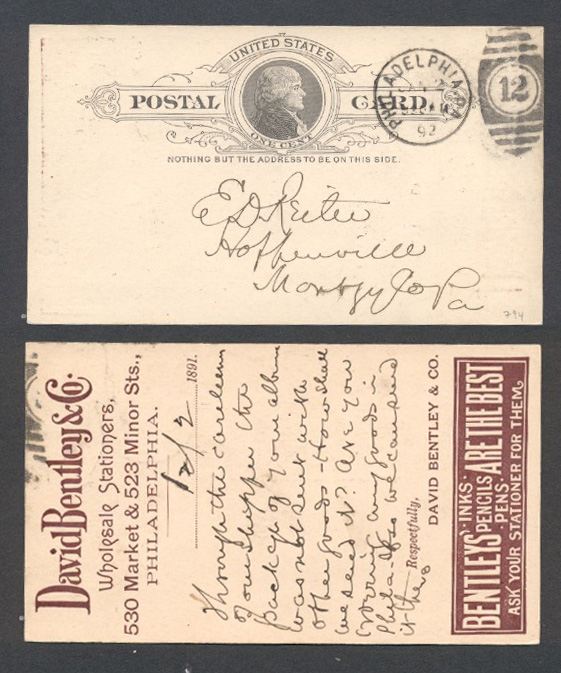 UNITED STATES
POSTAL CARD.
ONE CENT
NOTHING BUT THE ADDRESS TO BE ON THIS SIDE.
PHILADELPHIA, PA
92
12
E D Reiter
Hoppenville
Montgy Co Pa
794
David Bentley & Co.
Wholesale Stationers,
530 Market & 523 Minor Sts.,
PHILADELPHIA.
12/2 1891.
Through the carelessn
of our shipper the
package of your album
was not sent with
other goods - How shall
we send it? Are you
any goods in
Phila - if so we can send
it there
Respectfully,
DAVID BENTLEY & CO.
BENTLEYS' INKS PENCILS PENS ARE THE BEST
ASK YOUR STATIONER FOR THEM.